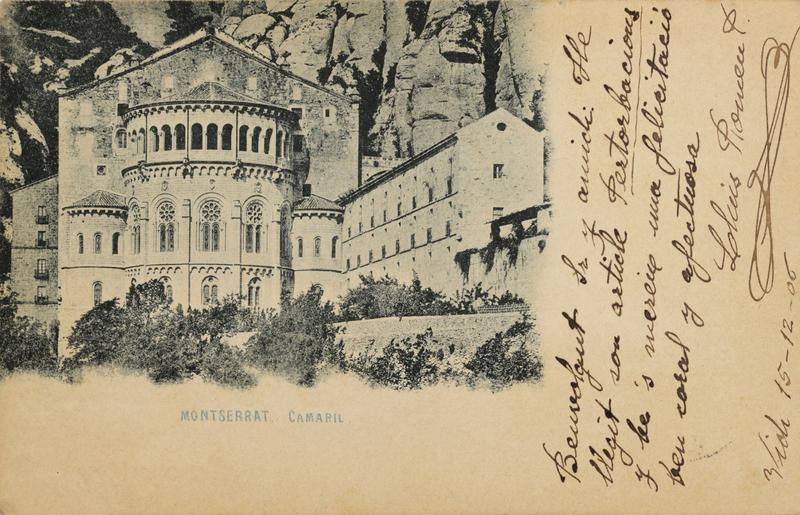 MONTSERRAT. CAMARIL
Benvolgut Sr y amich: He
llegit son article Pertorbacions
y be 's mereix una felicitació
ben coral y afectuosa
Lluis Romeu P.
Vich 15-12-06